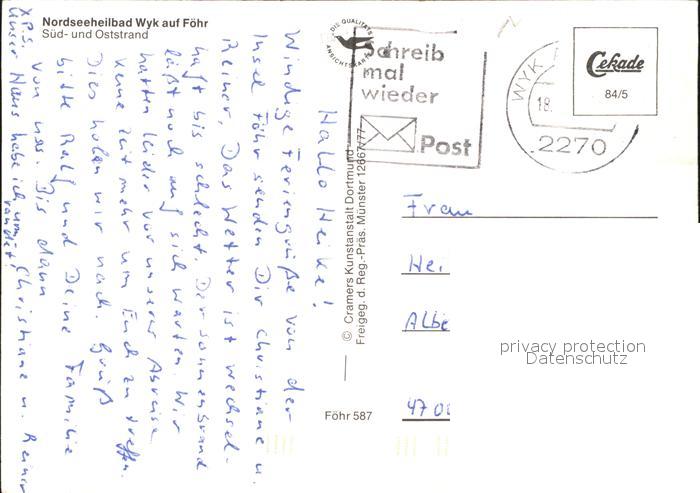 Nordseeheilbad Wyk auf Föhr
Süd- und Oststrand
DIE QUALITÄTS
ANSICHTSKARTE
Schreib
mal
wieder
Post
WYK
18.
2270
Cekade
84/5
Hallo Heike!
Windige Feriengrüße von der
Insel Föhr senden Dir Christiane u.
Reiner, Das Wetter ist wechsel-
haft bis schlecht. Der Sonnenbrand
läßt noch auf sich warten. Wir
hatten leider vor unserer Abreise
keine Zeit mehr um Euch zu treffen.
Dies holen wir nach. Grüß
bitte Ralf und Deine Familie
von uns. Bis dann
Christiane u. Reiner
X P.S.
Unser Haus habe ich um-
randet!
© Cramers Kunstanstalt Dortmund
Freigeg. d. Reg.-Präs. Münster 12667/77
Föhr 587
Frau
Hei
Albe
470
privacy protection
Datenschutz